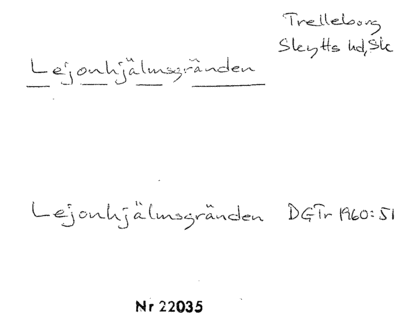 Trelleborg
Skytts hd, Sk
Lejonhjälmsgränden
Lejonhjälmsgränden DGTr 1960:51
Nr 22035